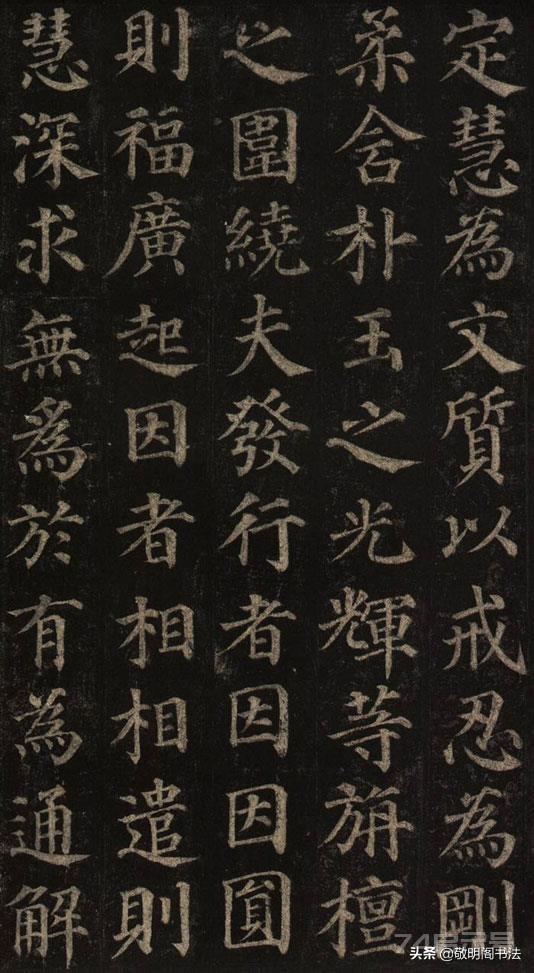 定慧為文質以戒忍為剛
柔含朴玉之光輝等旃檀
之圍繞夫發行者因因圓
則福廣起因者相相遣則
慧深求無為於有為通解
頭条 @敬明阁书法